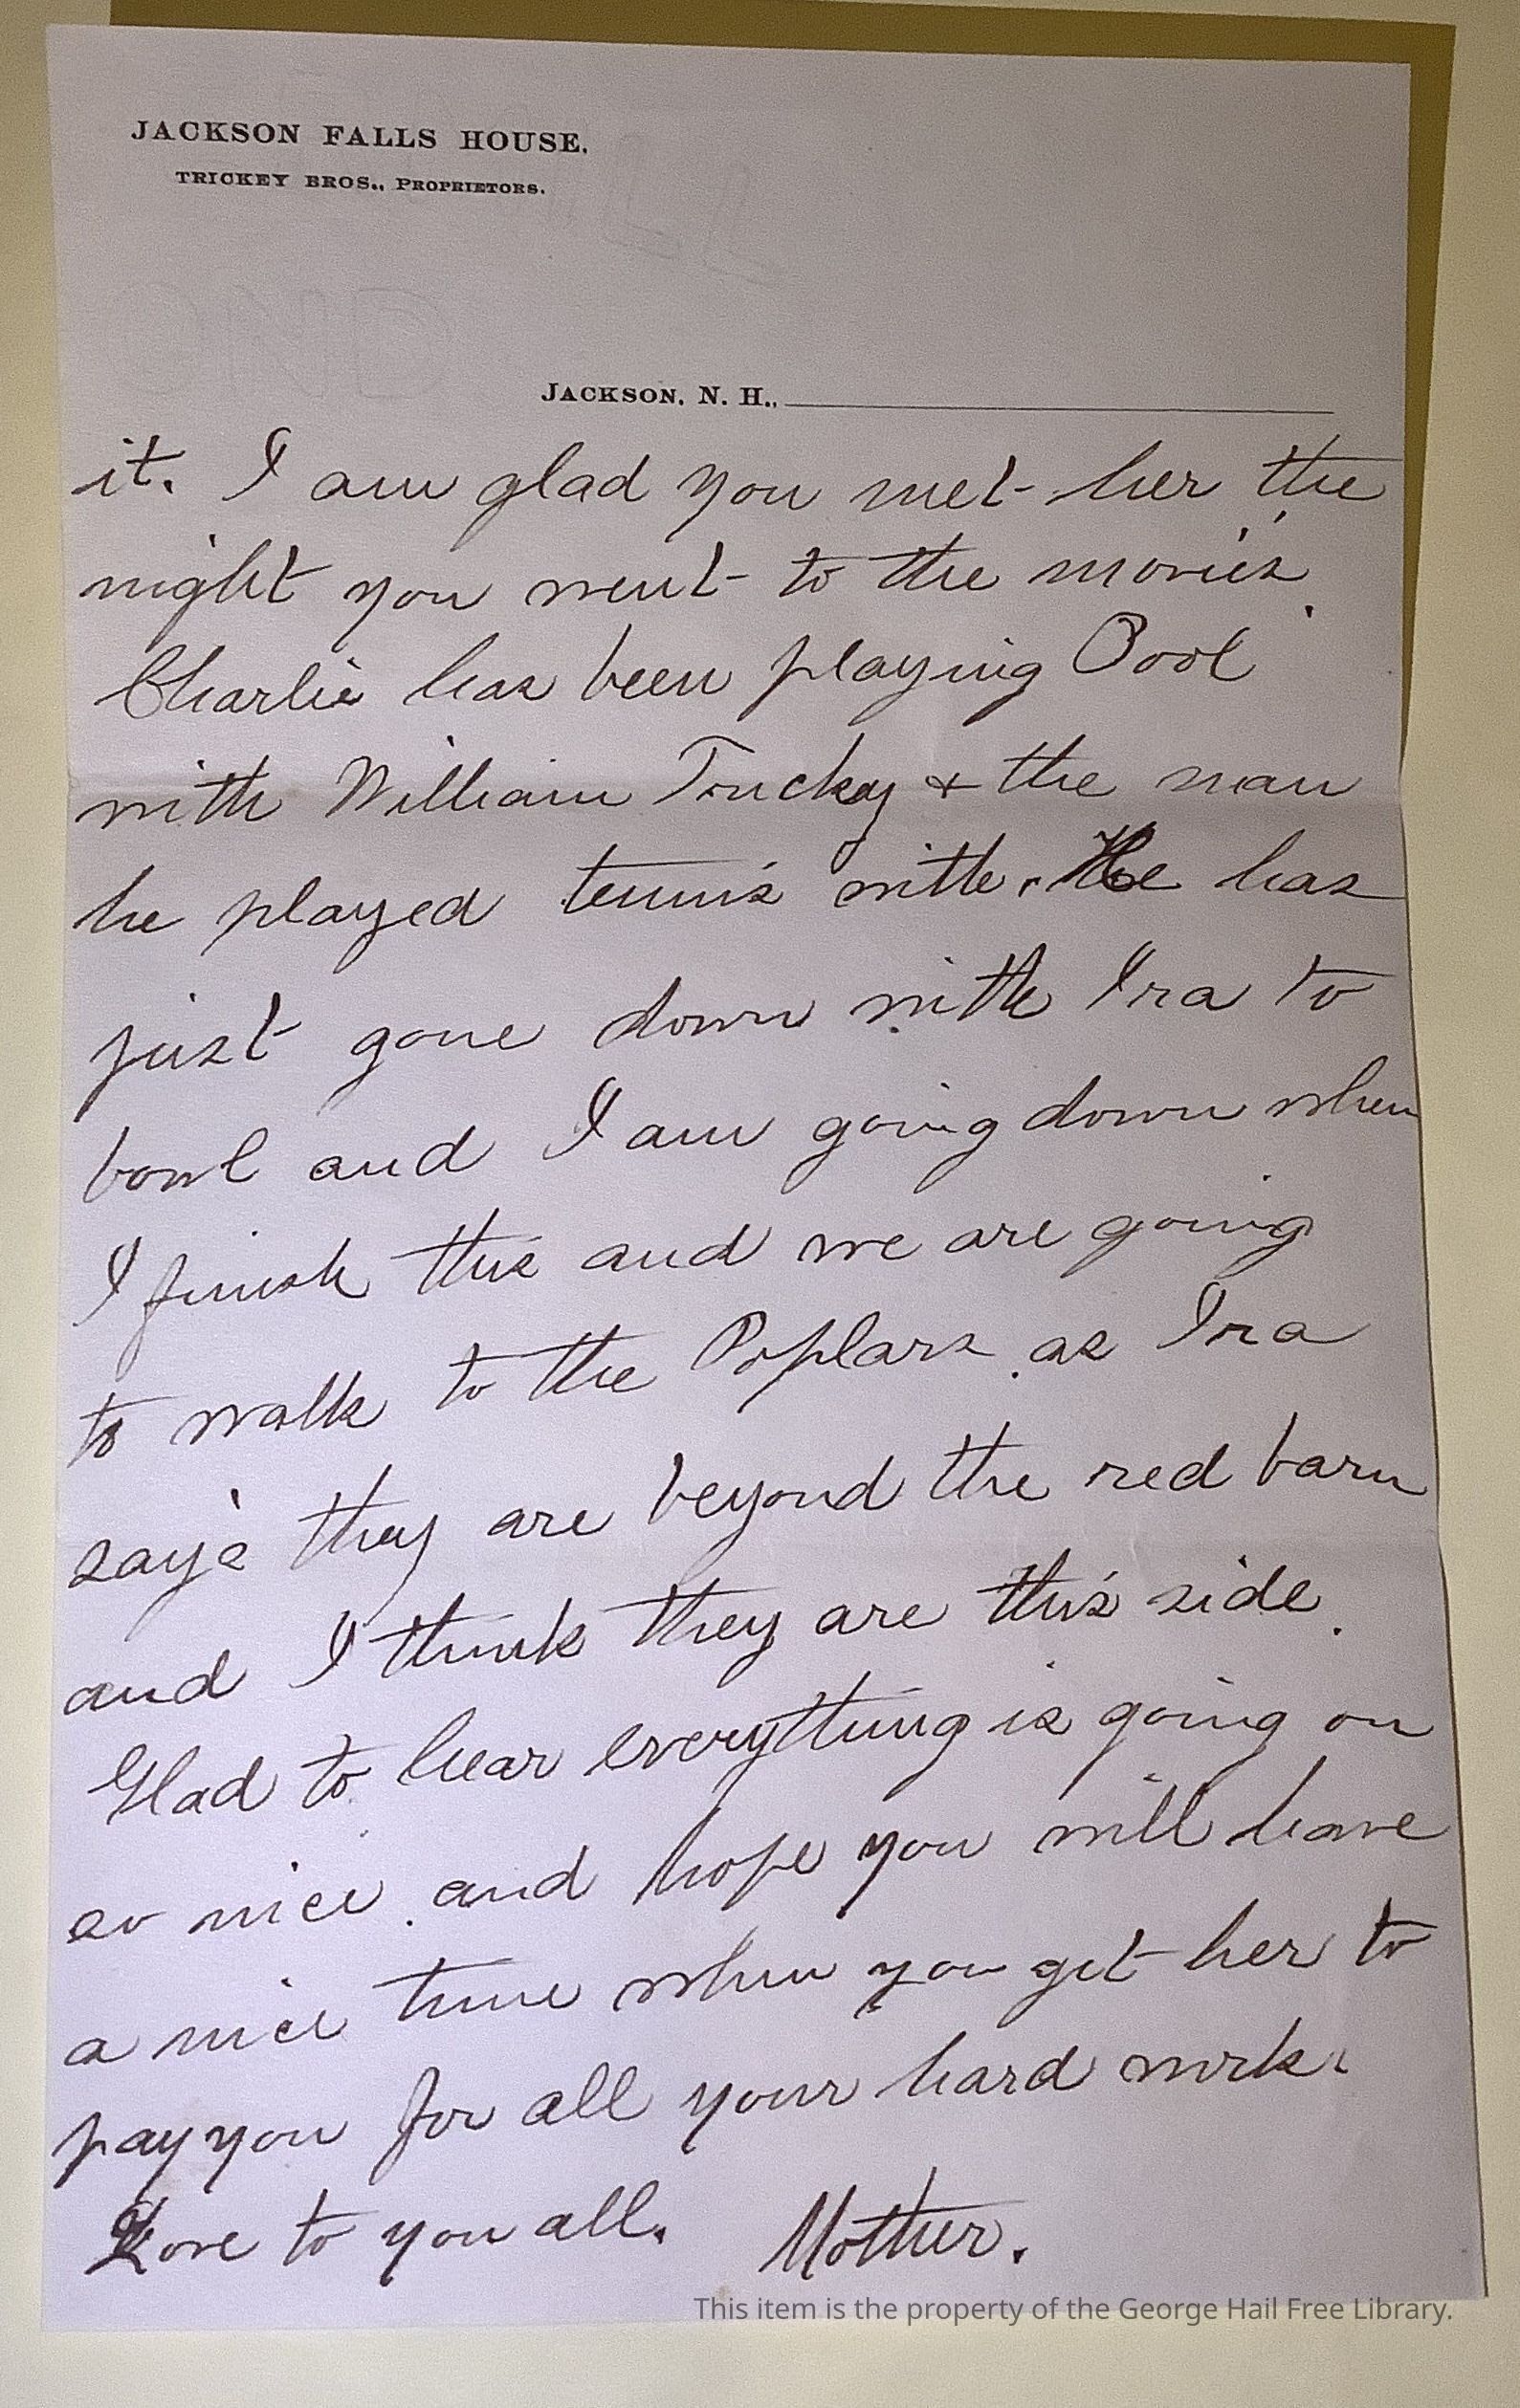 JACKSON FALLS HOUSE.
TRICKEY BROS., PROPRIETORS.
JACKSON, N. H.,
it. I am glad you met her the
night you went to the movies.
Charlie has been playing Pool
with William Trickey + the man
he played tennis with. He has
just gone down with Ira to
bowl and I am going down when
I finish this and we are going
to walk to the Poplars as Ira
says they are beyond the red barn
and I think they are this side.
Glad to hear everything is going on
so nice and hope you will have
a nice time when you get her to
pay you for all your hard work.
Love to you all. Mother.
This item is the property of the George Hail Free Library.